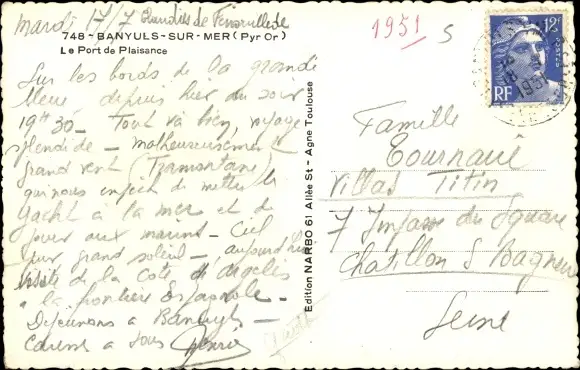 mardi 17/7
748 - BANYULS-SUR-MER (Pyr Or)
Le Port de Plaisance
Sur les bords de la grande
bleue, depuis hier au soir
19H30 - Tout va bien, voyage
splendide - malheureusement
grand vent (Tramontane)
qui nous de mettre le
yacht à la mer et de
jouer aux marins - Ciel
pur grand soleil, aujourd'hui
visite de la cote d'Argelès
à la frontière Espagnole.
Déjeunons a Banyuls -
a vous
1951
S
12F
POSTES
RF
1951
Edition NARBO 61 Allée St - Agne Toulouse
Famille
Tournaud
Villas Titin
7 Impasse du Square
Chatillon S Bagneux
Seine